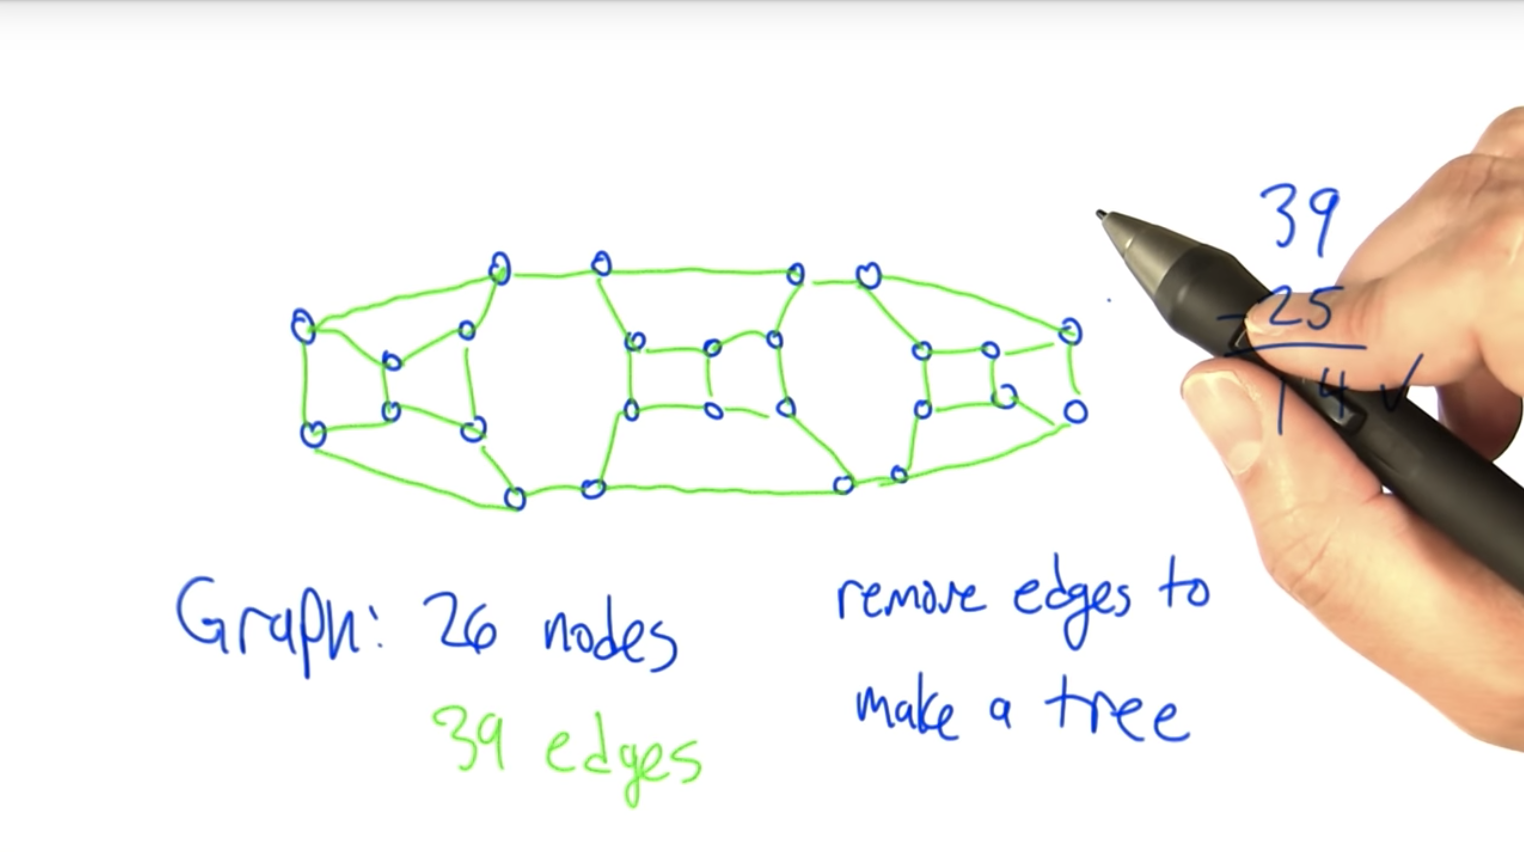 39
- 25
14 ✓
Graph: 26 nodes
39 edges
remove edges to
make a tree